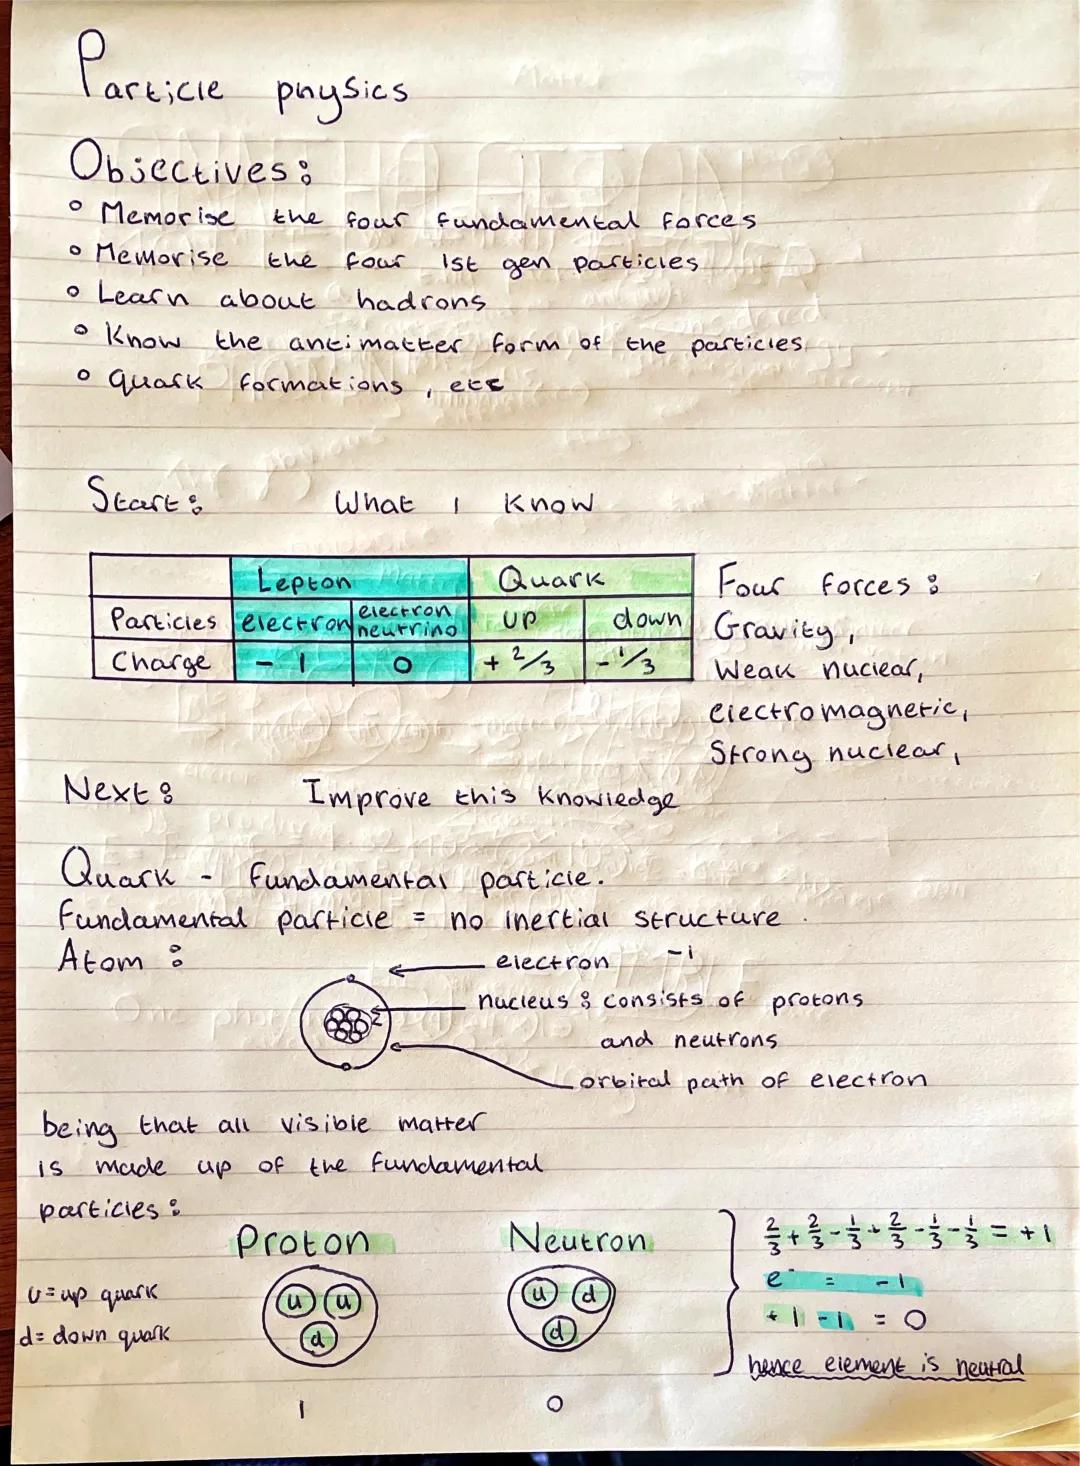 Particle physics
Objectives:
° Memorise the four fundamental forces
° Memorise the four 1st gen particles
° Learn about hadrons
° Know the antimatter form of the particles
° quark formations, etc
Start: What I know
Lepton Quark
Particles electron electron neutrino up down
Charge - 1 0 + 2/3 - 1/3
Four forces:
Gravity,
Weak nuclear,
electromagnetic,
Strong nuclear,
Next: Improve this knowledge
Quark - fundamental particle.
fundamental particle = no inertial structure.
Atom:
electron -1
nucleus: consists of protons
and neutrons
orbital path of electron
being that all visible matter
is made up of the fundamental
particles:
Proton Neutron
u = up quark
d = down quark
u u
d
u d
d
1 0
2/3 + 2/3 - 1/3 + 2/3 - 1/3 - 1/3 = +1
e⁻ = -1
+1 -1 = 0
hence element is neutral